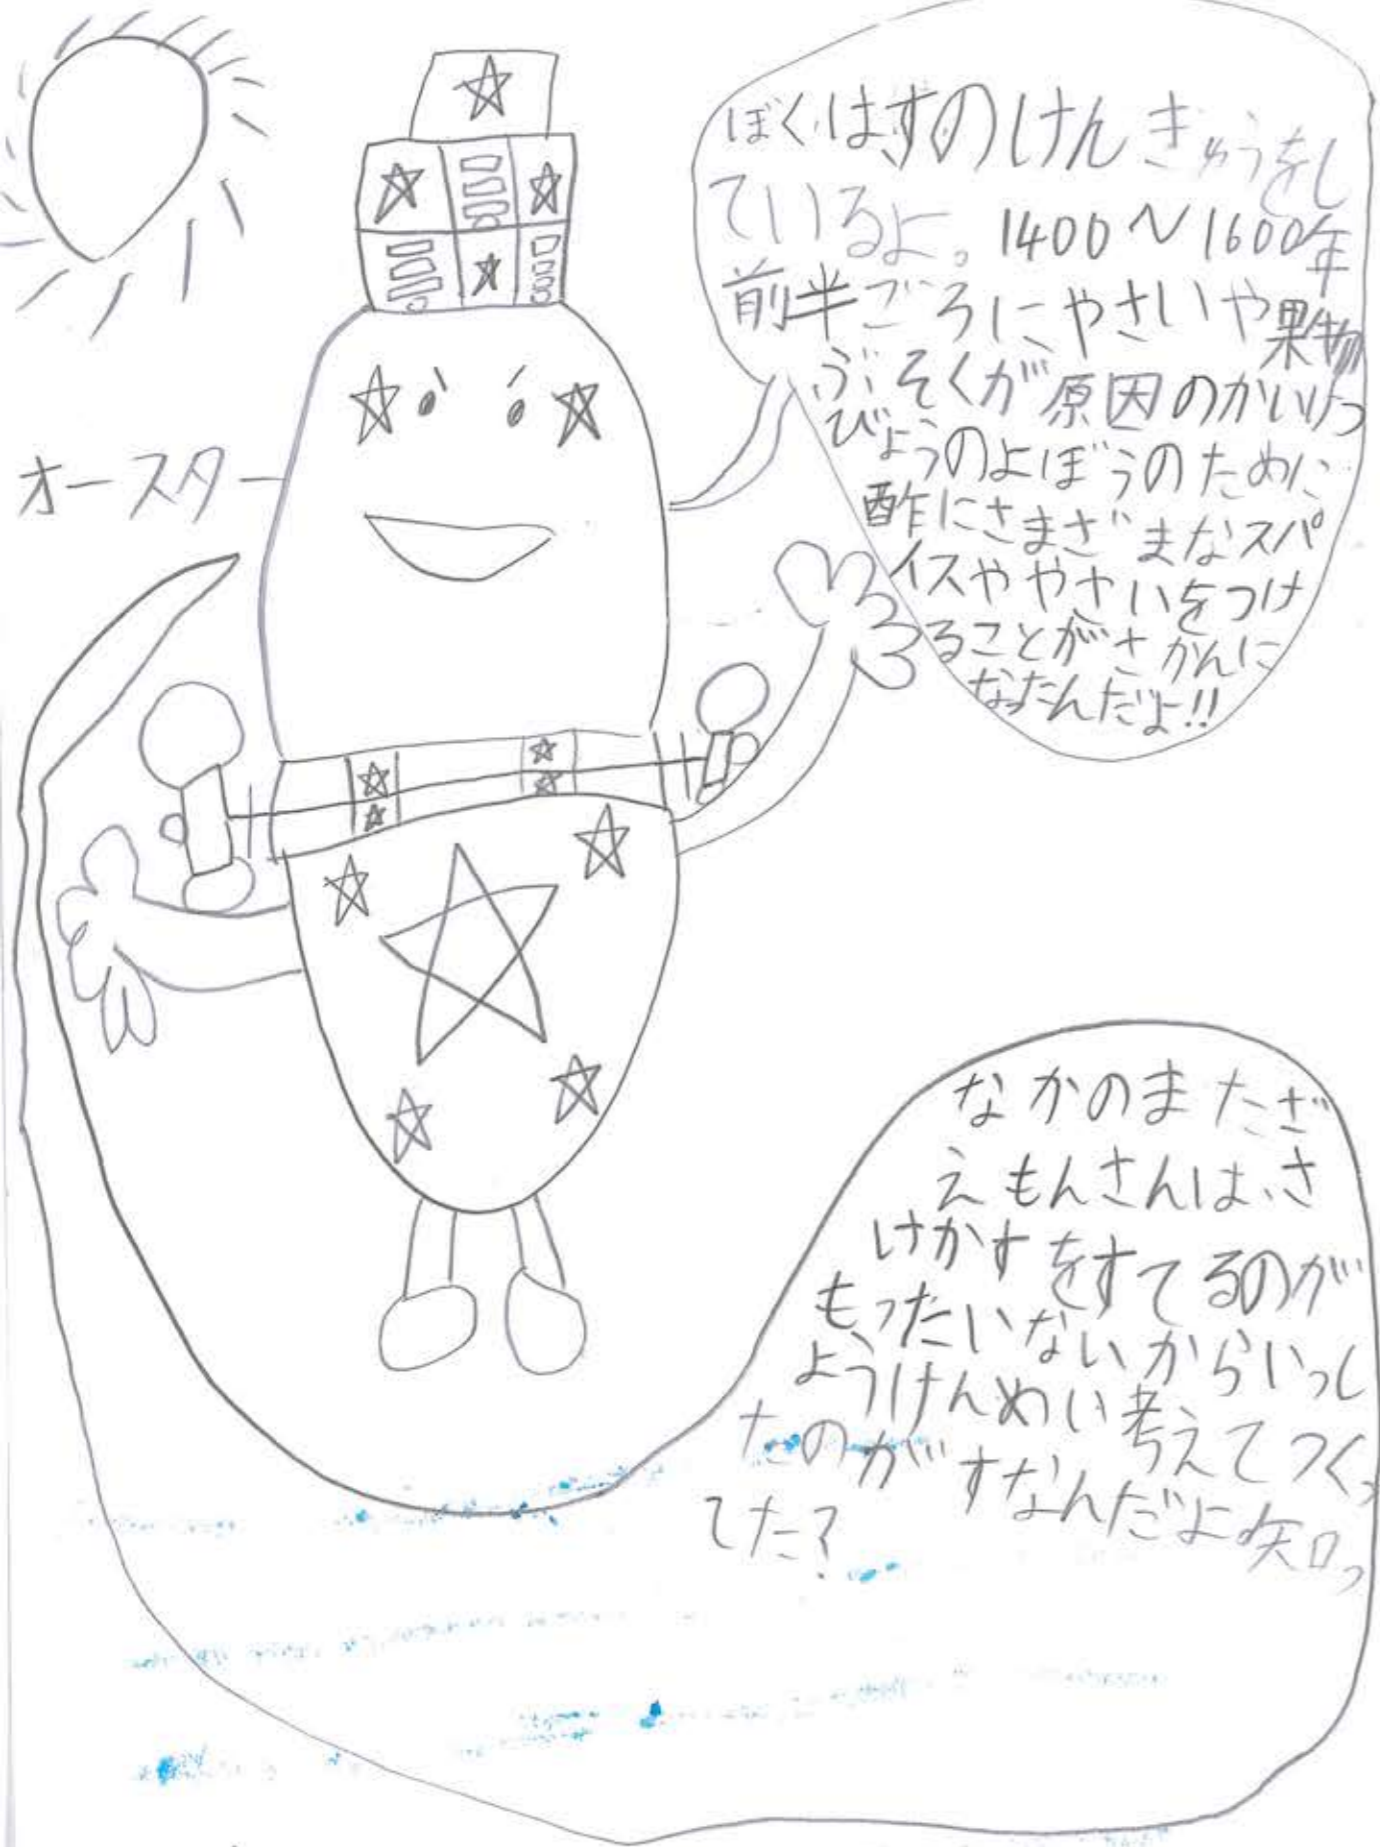 ぼくはすのけんきゅうをし
ているよ。1400〜1600年
前半ごろにやさいや果物
ぶそくが原因のかいけつ
びょうのよぼうのために
酢にさまざまなスパ
イスややさいをつけ
ることがさかんに
なったんだよ!!
オースター
なかのまたざ
えもんさんは、さ
けかすをすてるのが
もったいないからいっし
ょうけんめい考えてつくっ
たのがすなんだよ知っ
てた?